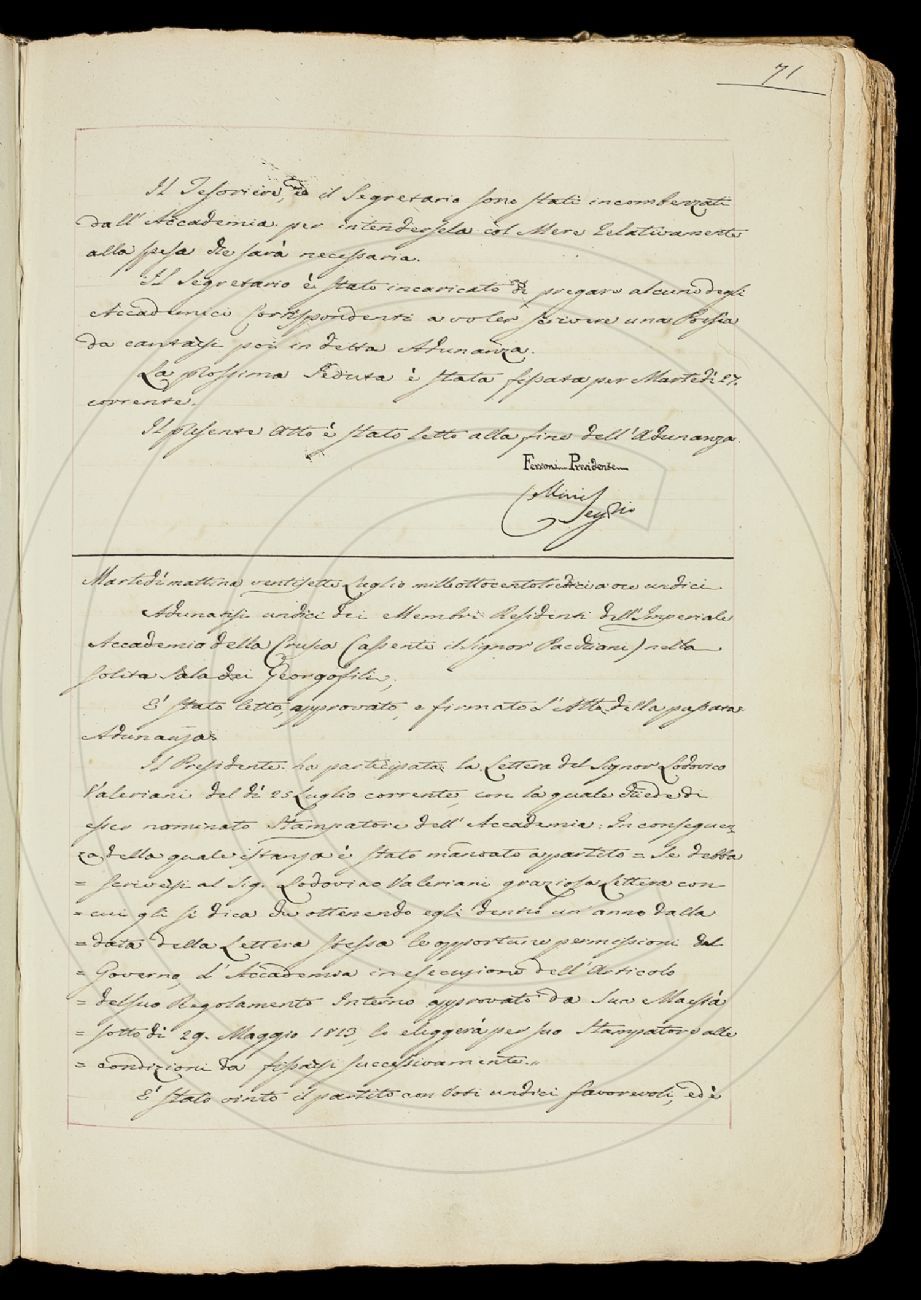 71
Il Tesoriere, e il Segretario sono stati incombenzati
dall'Accademia per intendersela col Mere relativamente
alla spesa che sarà necessaria.
Il Segretario è stato incaricato di pregare alcuno degli
Accademici Corrispondenti a voler scrivere una Poesia
da cantarsi poi in detta Adunanza.
La prossima Seduta è stata fissata per Martedì 27.
corrente.
Il presente Atto è stato letto alla fine dell'Adunanza.
Ferroni Presidente
Martedì mattina ventisette Luglio milleottocentotredici a ore undici
Adunatisi undici dei Membri Residenti dell'Imperiale
Accademia della Crusca (assente il Signor) nella
solita Sala dei Georgofili,
E' stato letto, approvato, e firmato l'Atto della passata
Adunanza.
Il Presidente ha participata la Lettera del Signor Lodovico
Valeriani del dì 25 Luglio corrente, con la quale chiede di
esser nominato Stampatore dell'Accademia: In conseguen
za della quale istanza è stato mandato a partito = Se debba
= scriversi al Sig. Lodovico Valeriani graziosa Lettera con
= cui gli si dica che ottenendo egli dentro un'anno dalla
= data della Lettera stessa le opportune permessioni dal
= Governo, l'Accademia in esecuzione dell'Articolo
= del suo Regolamento Interno approvato da Sua Maestà
= sotto dì 29. Maggio 1813, lo eleggerà per suo Stampatore alle
= condizioni da fissarsi successivamente."
E' stato vinto il partito con Voti undici favorevoli, ed è